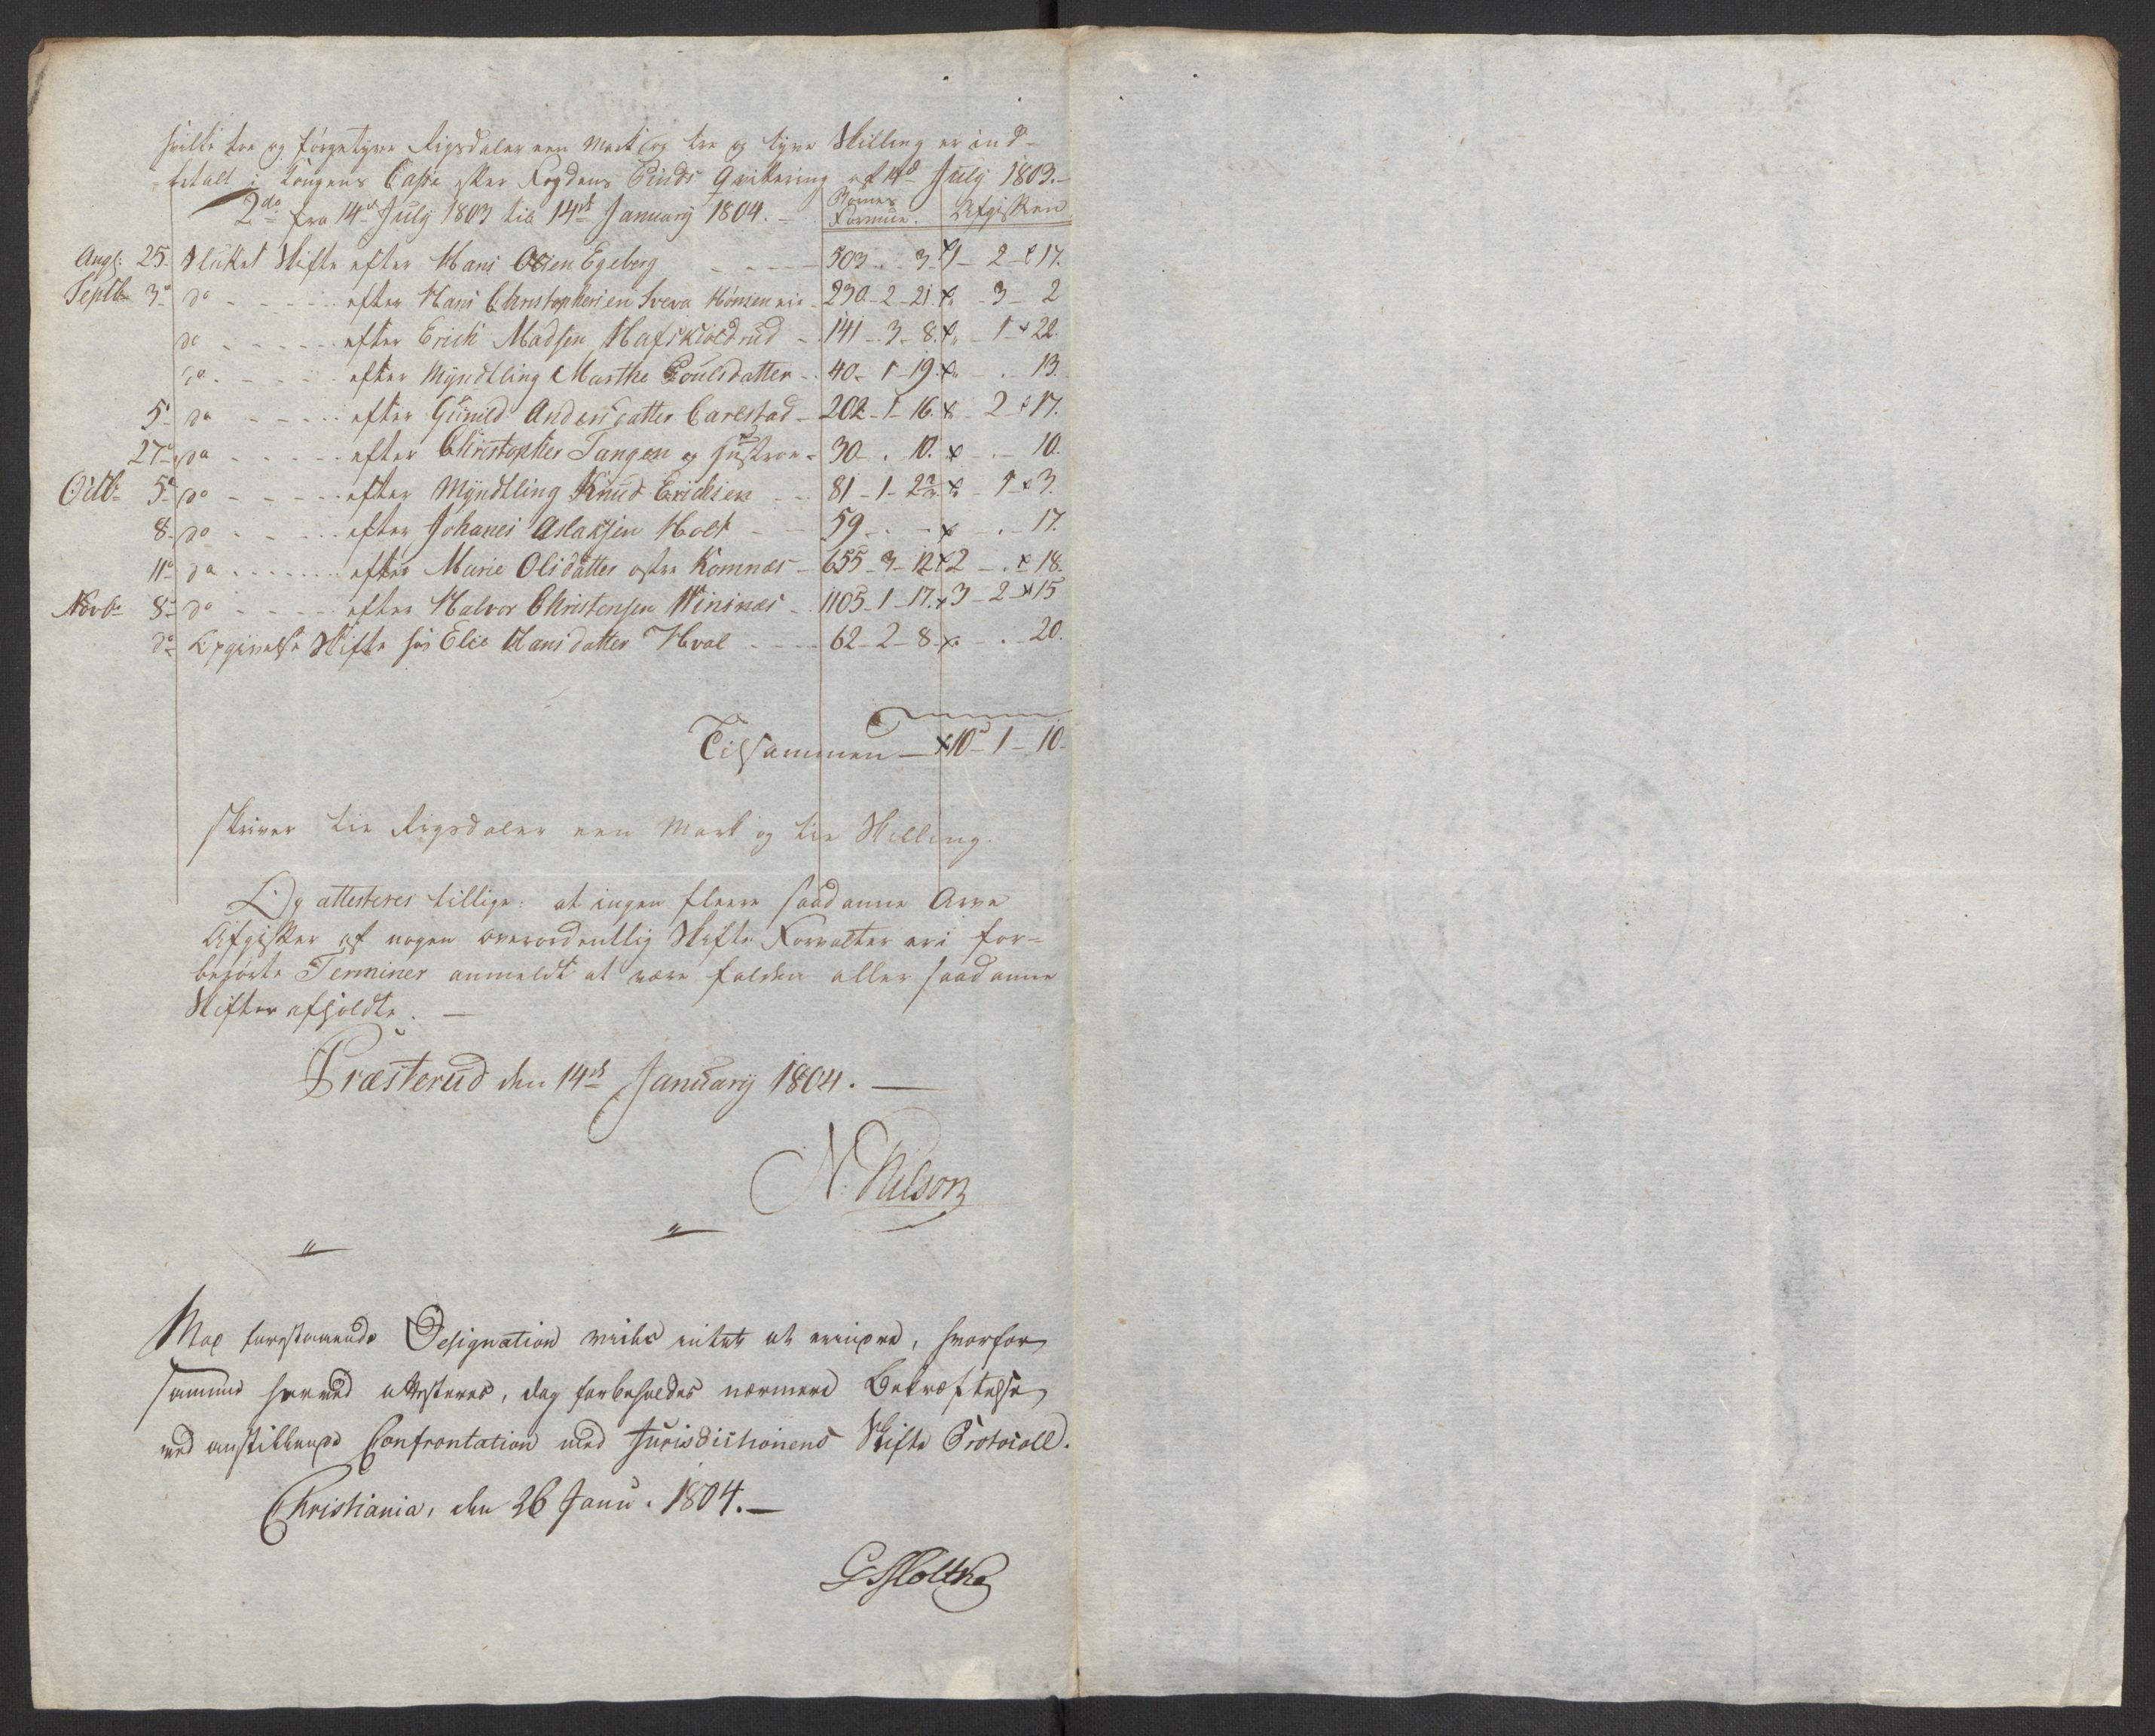 hvilke tre og førgetyve Rigsdaler een Mark og tre og tyve Skilling er ind-
betalt i Kongens Casse efter Fogdens Qvitering af 14d July 1803.-
2do fra 14d July 1803 til 14de January 1804. - Boernes Formue. Afgiften
Augs: 25. Sluttet Skifte efter Hans Olsen Egeberg - 503 - . 3 - 1 - 2 - 17.
Septbr 3d do - efter Hans Christophersen - 230 - 2 - 21 - 3 - 2
do - efter Erich Madsen - 141 - 3 - 8. - 1 - 22.
do - efter Myndtling Marthe Poulsdatter - 40 - 1 - 19. - . - 13.
5d do - efter Gunild Andersdatter Carlstad - 202 - 1 - 16. - 2 - 17.
27d do - efter Christopher Tangen og Hustroe - 30 - . 10. - . - 10.
Octbr 5d do - efter Myndtling Knud Erichsen - 81 - 1 - 2 2/3 - 1 - 3.
8. do - efter Johanes Aslaksen Holt - 59 - . - . - 17.
11d do - efter Marie Olsdatter østre Komnæs - 655 - 3 - 12 2 - . - 18.
Novbr 8d do - efter Halvor Christensen - 1105 - 1 - 17. 3 - 2 - 15
do Opgivelse Skifte hos Elie Hansdatter Hval - 62 - 2 - 8 - . - 20.
Tilsammen - 10d - 1 - 10.
skriver tie Rigsdaler een Mark og tie Skilling.
Og attesteres tillige: at ingen fleere saadanne Arve
Afgifter af nogen overordentlig Skifte Forvalter er i for-
berørte Terminer anmeldt at være falden eller saadanne
Skifter afholdte. -
Præsterud den 14de January 1804. -
N. Nilson
Mod forestaaende Designation vides intet at erindre, hvorfor
samme herved attesteres, dog forbeholdes nærmere Bekræftelse
ved anstillende Confrontation med Jurisdictionens Skifte Protocoll.
Christiania, den 26 Janu. 1804. -
G Moltke